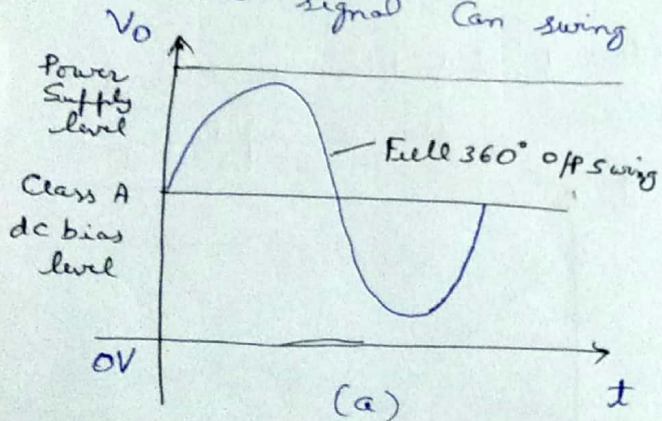 signal Can swing
Vo
Power
Supply
level
Full 360° o/p swing
Class A
dc bias
level
0V
(a)
t